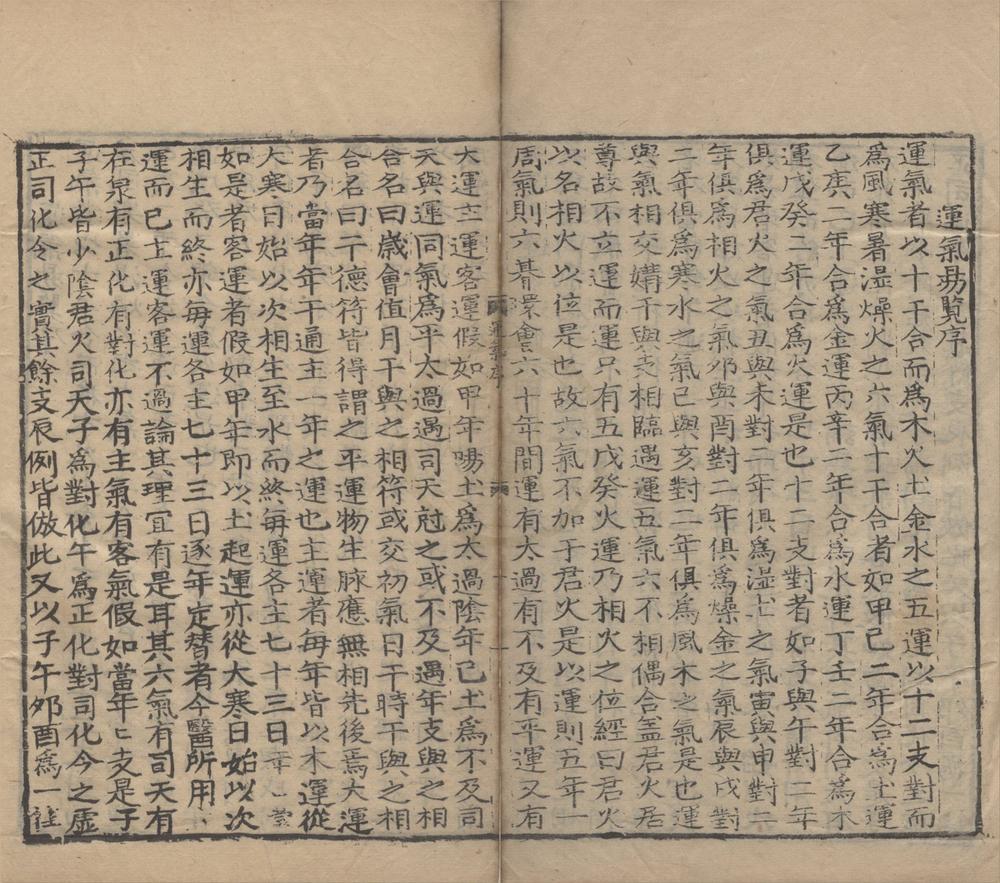 運氣易覽序
運氣者以十干合而爲木火土金水之五運以十二支對而
爲風寒暑湿燥火之六氣十干合者如甲己二年合爲土運
乙庚二年合爲金運丙辛二年合爲水運丁壬二年合爲木
運戊癸二年合爲火運是也十二支對者如子與午對二年
俱爲君火之氣丑與未對二年俱爲湿土之氣寅與申對二
年俱爲相火之氣夘與酉對二年俱爲燥金之氣辰與戌對
二年俱爲寒水之氣巳與亥對二年俱爲風木之氣是也運
與氣相交媾干與支相臨遇運五氣六不相偶合盖君火居
尊故不立運而運只有五戊癸火運乃相火之位經曰君火
以名相火以位是也故六氣不加于君火是以運則五年一
周氣則六朞環會六十年間運有太過有不及有平運又有
大運主運客運假如甲年陽土爲太過陰年己土爲不及司
天與運同氣爲平太過遇司天尅之或不及遇年支與之相
合名曰歳會值月干與之相符或交初氣日干時干與之相
合名曰干德符皆得謂之平運物生脉應無相先後焉大運
者乃當年年干通主一年之運也主運者每年皆以木運從
大寒日始以次相生至水而終每運各主七十三日
如是者客運者假如甲年即以土起運亦從大寒日始以次
相生而終亦每運各主七十三日逐年定替者今醫所用
運而已主運客運不過論其理宜有是耳其六氣有司天有
在泉有正化有對化亦有主氣有客氣假如當年年支是子
子午皆少陰君火司天子爲對化午爲正化對司化令之虚
正司化令之實其餘支辰例皆倣此又以子午夘酉爲一
運氣序